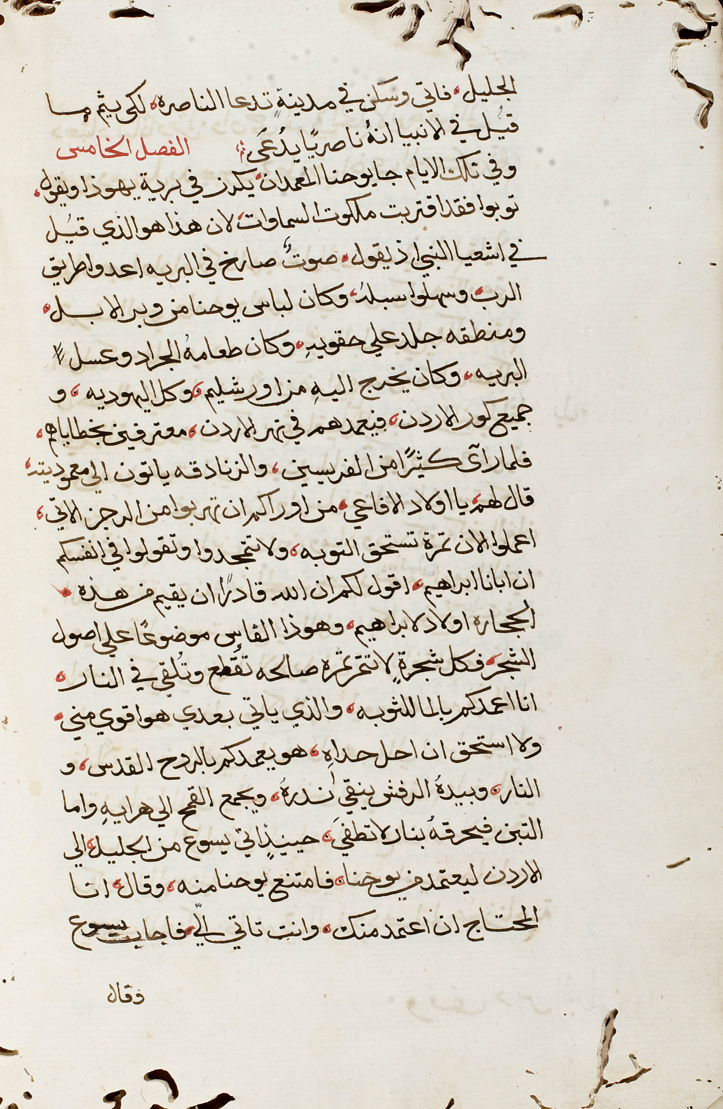 الجليل، فاتي وسكن في مدينةٍ تدعا الناصره، لكي يثم ما
قيل في الانبيا انهُ ناصريًا يدُعَى الفصل الخامس
وفي تلك الايام جا يوحنا المعمدان، يكرز في برية يهوذا ويقول،
توبوا فقد اقتربت ملكوت السماوات، لان هذا هو الذي قيل
في اشعيا النبي اذ يقول، صوتٌ صارخ في البريه اعدوا طريق
الرب، وسهلوا سبلهُ، وكان لباس يوحنا من وبر الابل،
ومنطقه جلد علي حقويهِ، وكان طعامهُ الجراد وعسل
البريه، وكان يخرج اليهِ من اورشليم، وكل اليهوديه، و
جميع كور الاردن، فيعمدهم في نهر الاردن، معترفين بخطاياهم،
فلما رآى كثيرًا من الفريسين، والزنادقه ياتون الي معموديته،
قال لهم، يا اولاد الافاعي، من اوراكم ان تهربوا من الرجز الاتي،
اعملوا الان ثمرة تستحق التوبه، ولا تتمجدوا وتقولوا في انفسكم
ان ابانا ابراهيم، اقول لكم ان الله قادرًا ان يقيم من هذه
الحجاره اولاد لابراهيم، وهوذا الفاس موضوعًا علي اصول
الشجر، فكل شجرةٍ لا تثمر ثمرة صالحه تُقطع وتُلقي في النار،
انا اعمدكم بالما للثوبه، والذي ياتي بعدي هو اقوي مني،
ولا استحق ان احل حداهِ، هو يعمدكم بالروح القدس، و
النار، وبيدهُ الرفش ينقي اندرهُ، ويجمع القمح الي هرايهِ واما
التبن فيحرقهُ بنار لا تطفيَ، حينيذٍ اتي يسوع من الجليل، الي
الاردن ليعتمد من يوحنا، فامتنع يوحنا منه، وقال، انا
المحتاج ان اعتمد منك، وانت تاتي اليّ، فاجاب يسوع
وقال